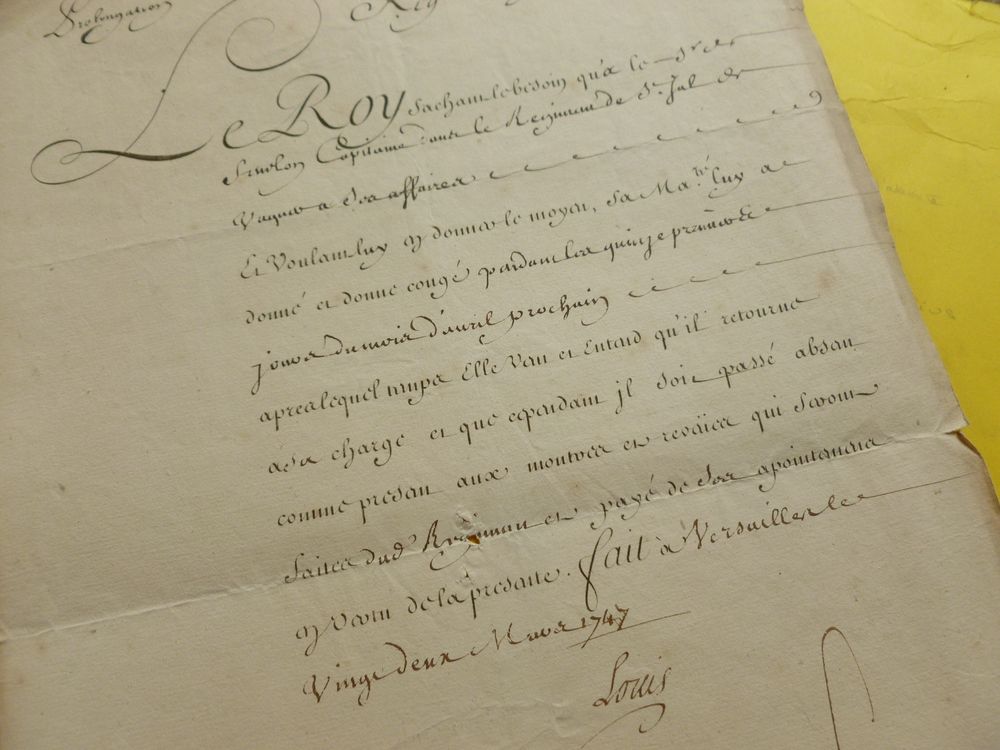 Prolongation
Le Roy sachant le besoin qu'a le Sr de
Capitaine dans le Regiment de St Jal de
Vaquer a Ses affaires
Et Voulant luy en donner le moyen, Sa Ma.té luy a
donné et donne congé pendant les quinze premiers
jours du mois d'avril prochain
apres lequel temps Elle Veut et Entend qu'il retourne
a sa charge et que cependant jl soit passé absent
comme present aux montres et revües qui seront
faites dud Regiment et payé de Ses apointemens
en vertu de la presente. fait a Versailles le
Vingt deux Mars 1747
Louis